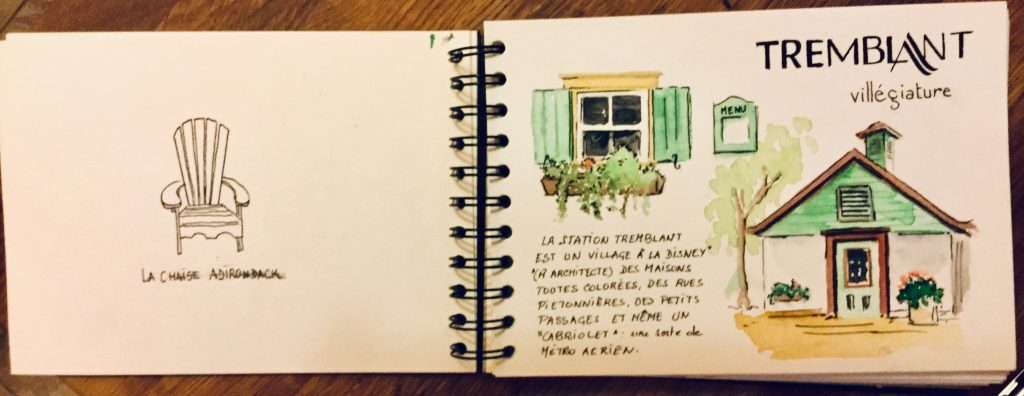 LA CHAISE ADIRONDACK
TREMBLANT
villégiature
MENU
LA STATION TREMBLANT
EST UN VILLAGE À LA DISNEY"
"(R ARCHITECTE) DES MAISONS
TOUTES COLORÉES, DES RUES
PIETONNIÈRES, DES PETITS
PASSAGES ET MÊME UN
"CABRIOLET": une sorte de
MÉTRO AERIEN.